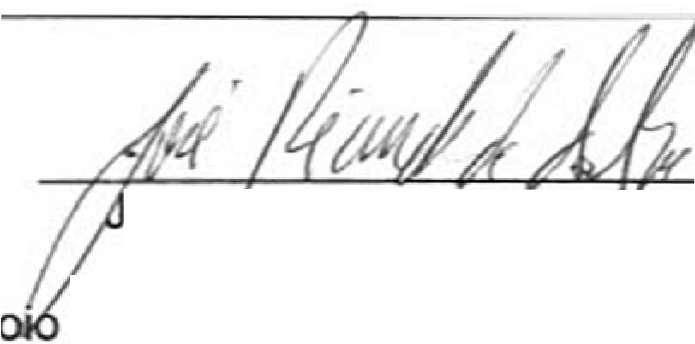 José Ricardo da Silva
oio